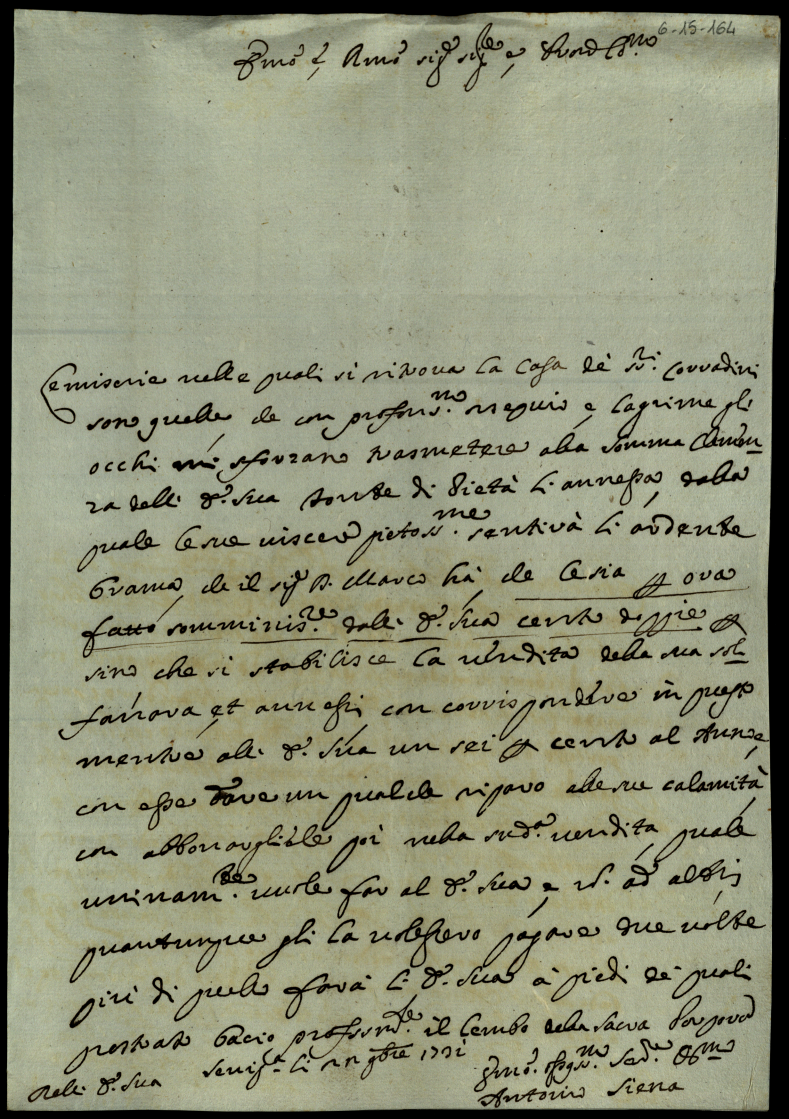 6-15-164
Emo e, Rmo sigr sigre e, Prod Colmo
Le miserie nelle quali si ritrova la Casa de Sri. Corradini
sono quelle che con profons.mo ossequio e, lagrime gli
occhi mi sforzano trasmetere alla somma Clemen
za dell' E. Sua fonte di Pietà li annessa, dalla
quale le sue viscere pietoss.me sentirà li ardente
brama, che il sigr D. Marco hà, che le sia p ora
fatto somminis.re dall' E. Sua cento doppie p
sino che si stabilisce la vendita della sua sol
fanara, et annessi con corrispondere in questo
mentre all' E. Sua un sei p cento al Anno e,
con esse dare un qualche riparo alle sue calamità
con abbonargliele poi nella sud.a vendita, quale
uninam.te vuole far al E. Sua e, nõ ad altri
quantunque gli la volessero pagare due volte
più di quello farà li E. Sua à piedi de quali
prostrato bacio profissm.te il Lembo della Sacra Porpora
Dell' E. Sua Senig.a li 22 9bre 1731
Umo. osqss.mo Ser.e Obmo
Antonio Siena